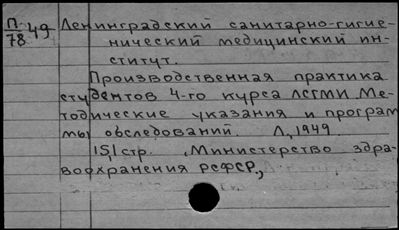 П-49
78
Ленинградский санитарно-гигие-
нический медицинский ин-
ститут.
Производственная практика
студентов 4-го курса ЛСГМИ Ме-
тодические указания и програм
мы обследований Л, 1949.
151 стр. Министерство здра-
воохранения РСФСР.,